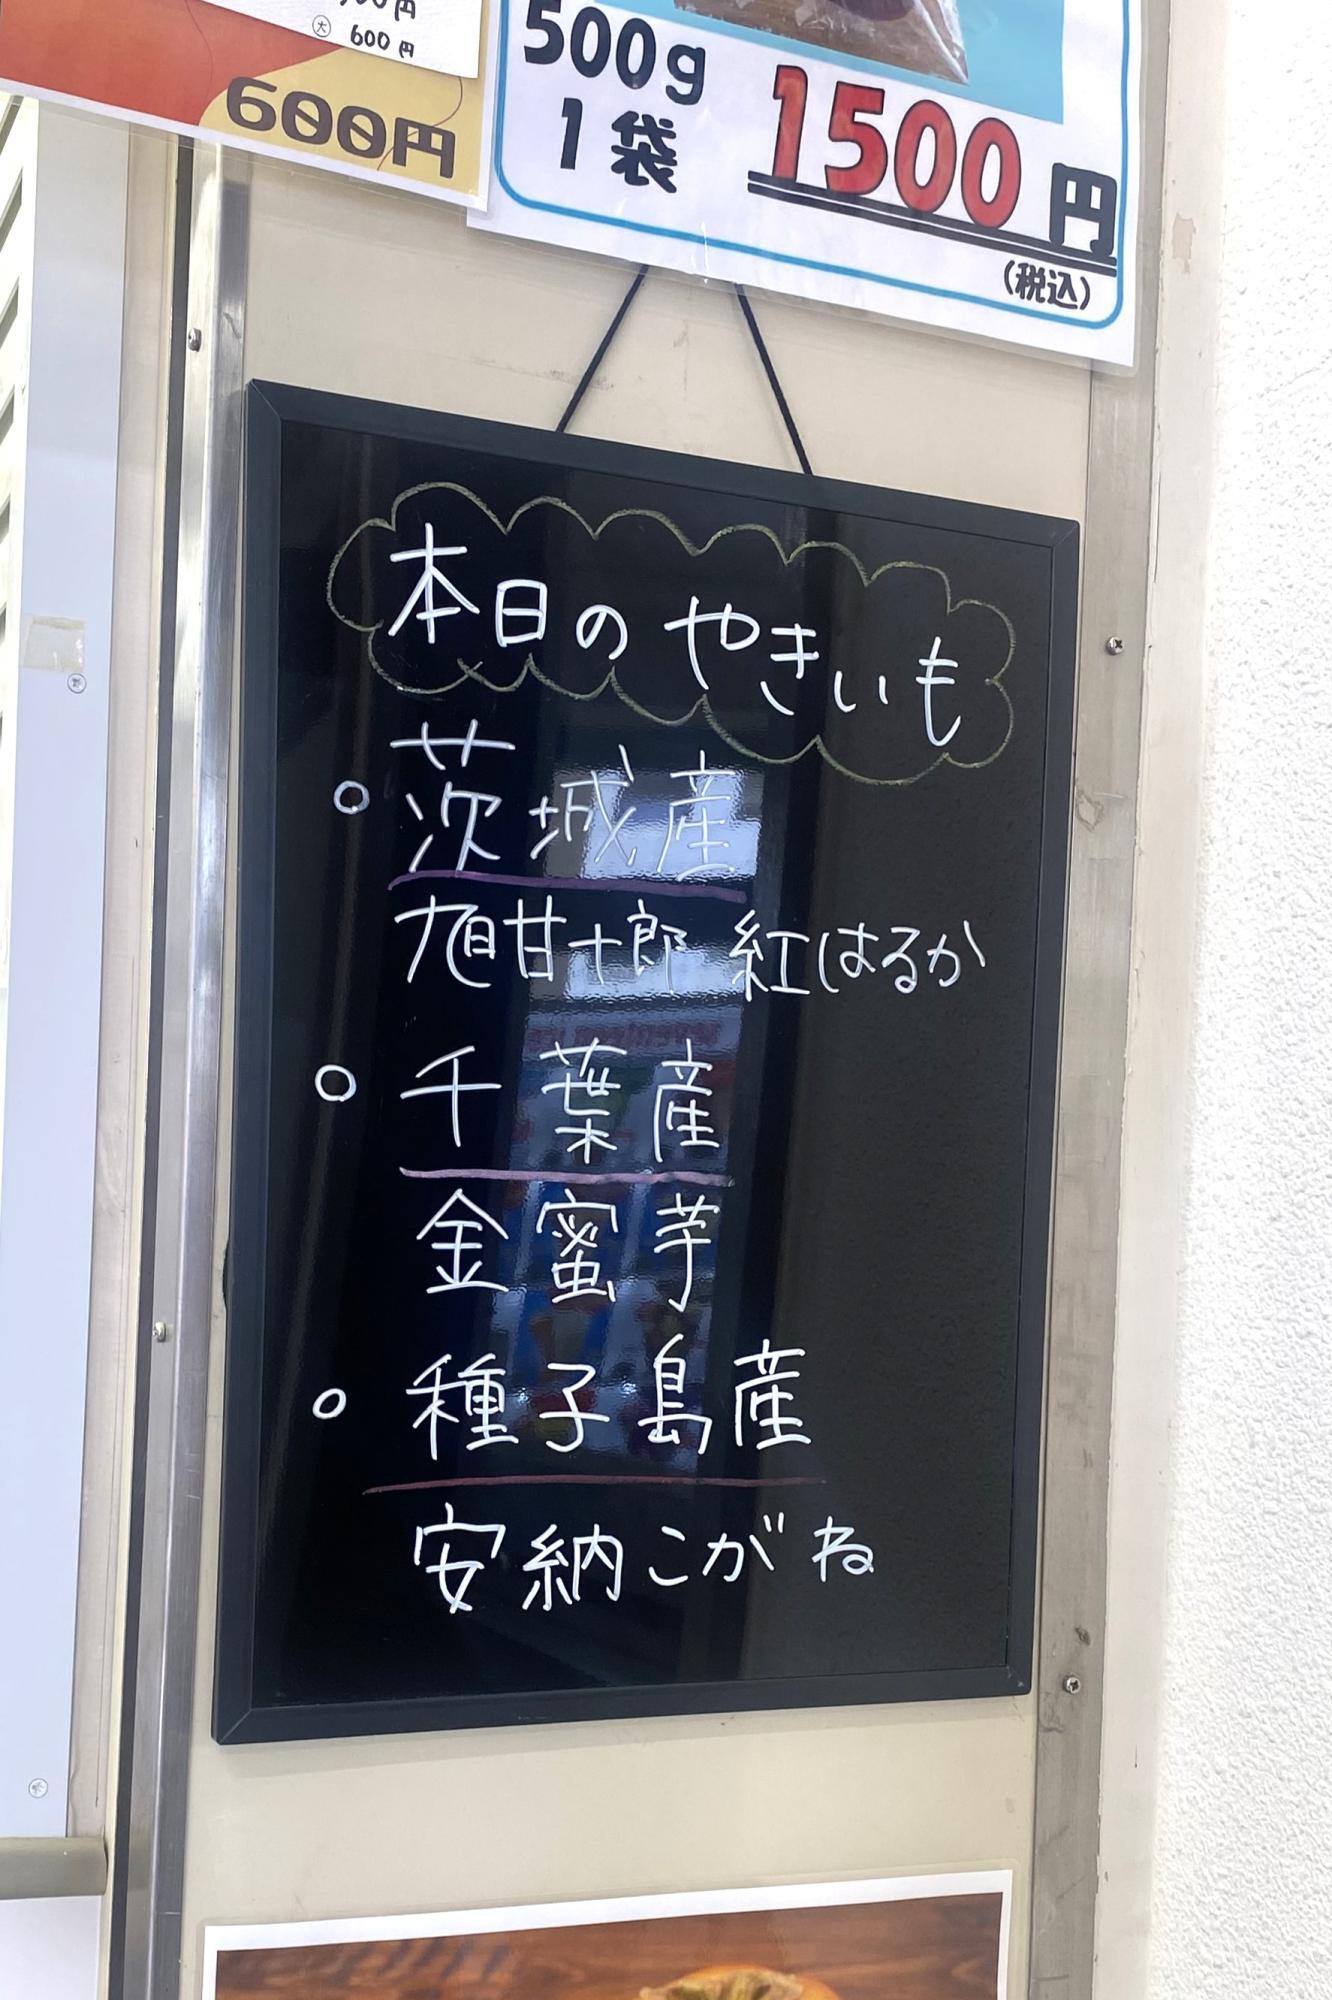 ㊅ 600円
600円
500g
1袋
1500円
(税込)
本日のやきいも
○ 茨城産
旭甘十郎 紅はるか
○ 千葉産
金蜜芋
○ 種子島産
安納こがね